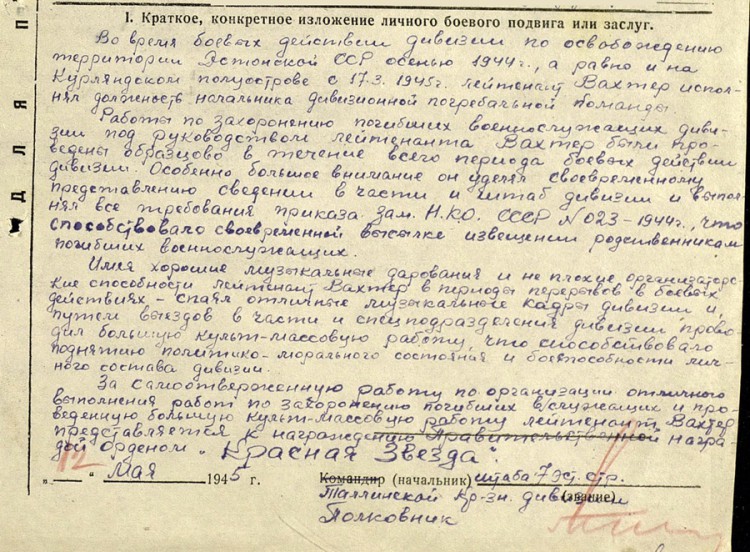 I. Краткое, конкретное изложение личного боевого подвига или заслуг.
Во время боевых действии дивизии по освобождению
территории Эстонской ССР осенью 1944 г., а равно и на
Курляндском полуострове с 17.3.1945г. лейтенант Вахтер испол-
нял должность начальника дивизионной погребальной команды.
Работы по захоронению погибших военнослужащих диви-
зии под руководством лейтенанта Вахтер были про-
ведены образцово в течение всего периода боевых действии
дивизии. Особенно большое внимание он уделял своевременному
представлению сведении в части и штаб дивизии и выпол-
нял все требования приказа зам. Н.К.О. СССР № 023-1944г., что
способствовало своевременной высылке извещении родственникам
погибших военнослужащих.
Имея хорошие музыкальные дарования и не плохие организаторс-
кие способности лейтенант Вахтер в периоды перерывов в боевых
действиях - спаял отличные музыкальные кадры дивизии и,
путем выездов в части и спецподразделения дивизии прово-
дил большую культ-массовую работу, что способствовало
поднятию политико-морального состояния и боеспособности лич-
ного состава дивизии.
За самоотверженную работу по организации отличного
выполнения работ по захоронению погибших в/служащих и про-
веденную большую культ-массовую работу лейтенант Вахтер
представляется к награждению Правительственной награ-
дой орденом „Красная Звезда".
12
„ " Мая 1945 г.
Командир (начальник) штаба 7 эст. стр.
Таллинской Кр-зн. дивизии
(звание)
Полковник
ДЛЯ П